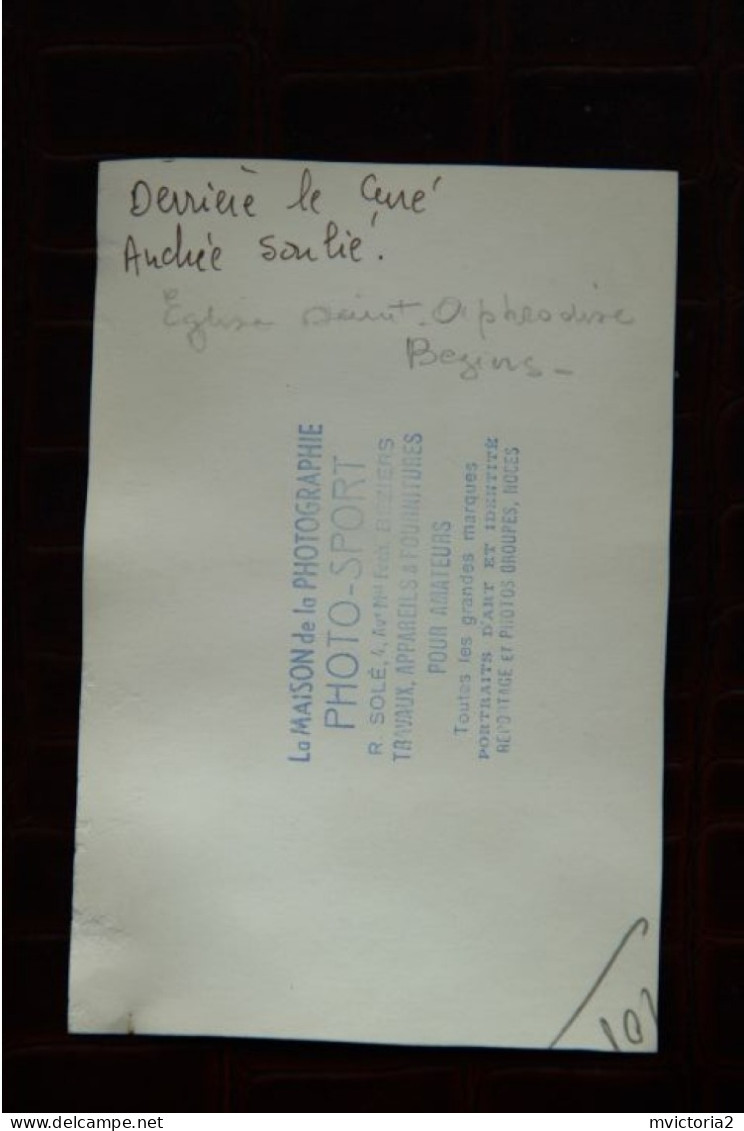 Derrière le Curé
Andrée Soulié.
Eglise Saint-Aphrodise
Beziers -
La MAISON de la PHOTOGRAPHIE
PHOTO-SPORT
R. SOLÉ, 4, Avt Mal Foch BEZIERS
TRAVAUX, APPAREILS & FOURNITURES
POUR AMATEURS
Toutes les grandes marques
PORTRAITS D'ART ET IDENTITÉ
REPORTAGE ET PHOTOS GROUPES, NOCES
delcampe.net
mvictoria2